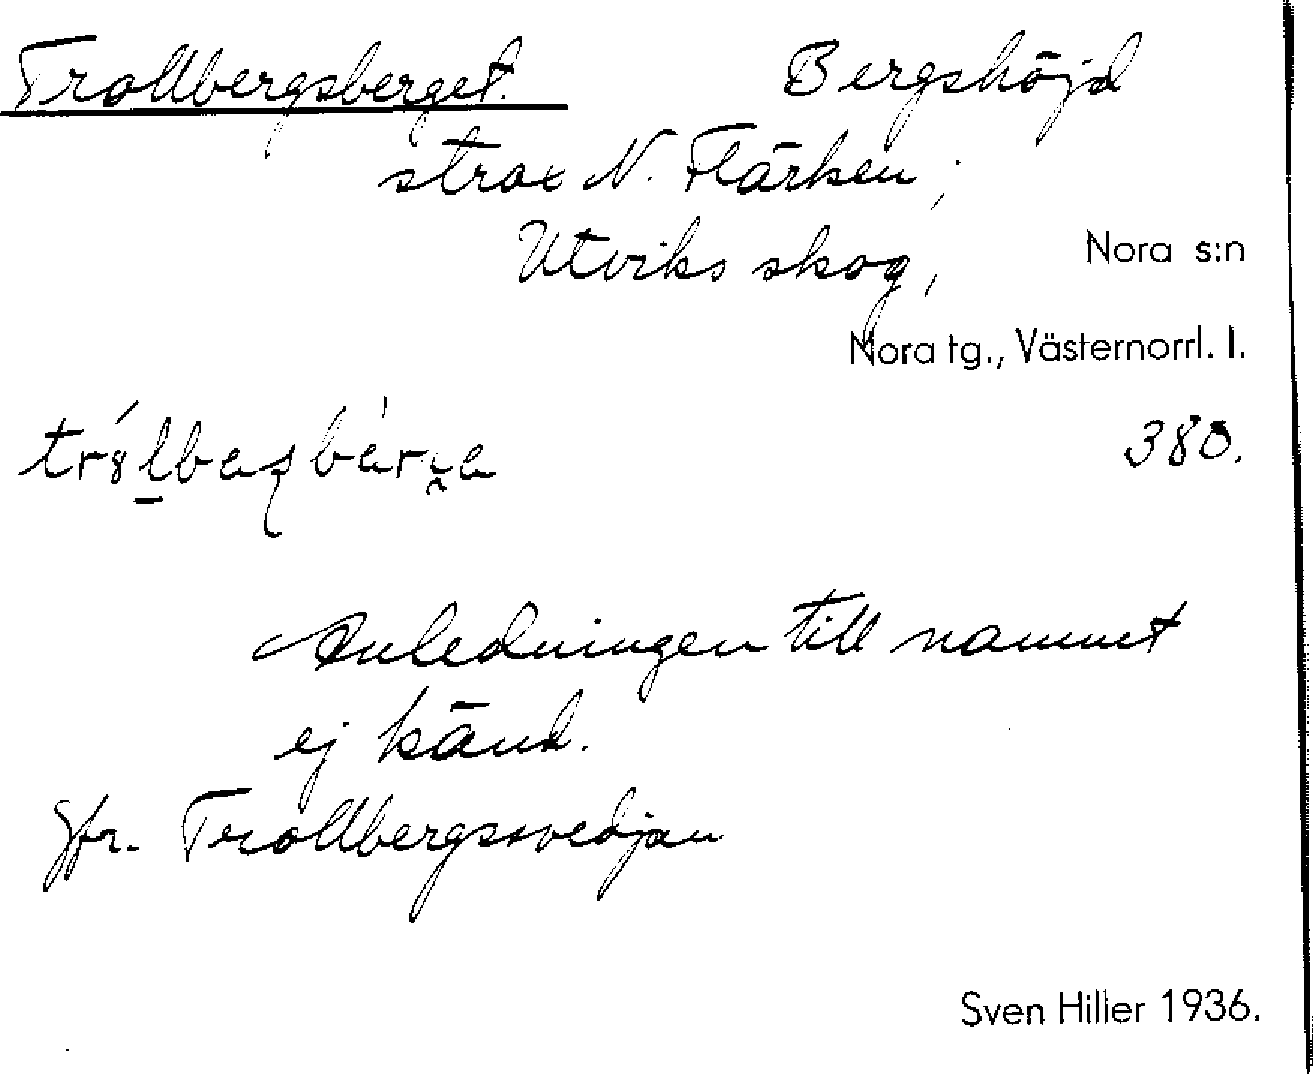 Trollbergsberget. Bergshöjd
strax N. Flärken,
Utviks skog, Nora s:n
Nora tg., Västernorrl. l.
380.
Anledningen till namnet
ej känd.
Jfr. Trollbergssvedjan
Sven Hiller 1936.